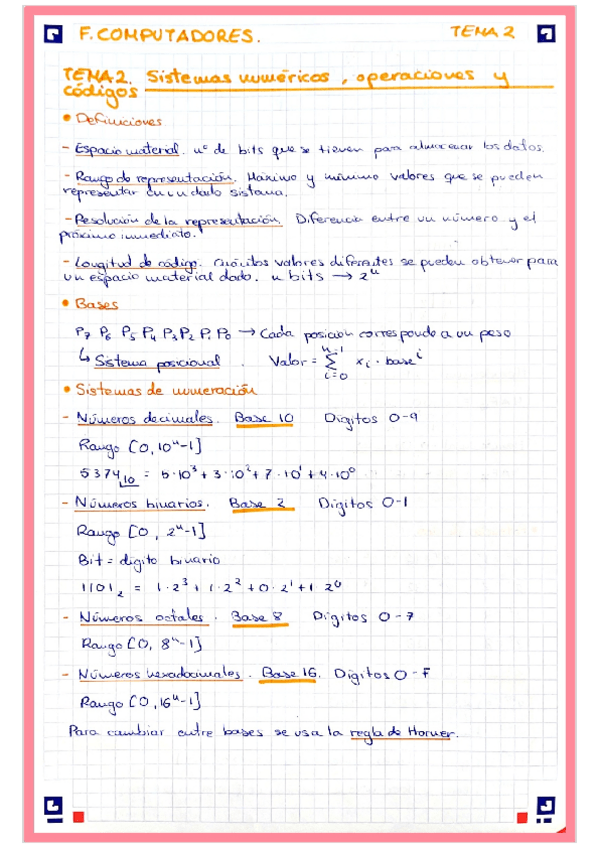 F. COMPUTADORES. TEMA 2
TEMA 2. Sistemas numéricos, operaciones y
códigos
• Definiciones
- Espacio material. nº de bits que se tienen para almacenar los datos.
- Rango de representación. Máximo y mínimo valores que se pueden
representar en un dado sistema.
- Resolución de la representación. Diferencia entre un número y el
próximo inmediato.
- Longitud de código. Cuántos valores diferentes se pueden obtener para
un espacio material dado. n bits → 2ⁿ
• Bases
P₇ P₆ P₅ P₄ P₃ P₂ P₁ P₀ → Cada posición corresponde a un peso
↳ Sistema posicional. Valor = Σ_{i=0}^{n-1} xᵢ · baseⁱ
• Sistemas de numeración
- Números decimales. Base 10 Dígitos 0-9
Rango [0, 10ⁿ-1]
5374₁₀ = 5·10³ + 3·10² + 7·10¹ + 4·10⁰
- Números binarios. Base 2 Dígitos 0-1
Rango [0, 2ⁿ-1]
Bit = dígito binario
1101₂ = 1·2³ + 1·2² + 0·2¹ + 1 2⁰
- Números octales. Base 8 Dígitos 0-7
Rango [0, 8ⁿ-1]
- Números hexadecimales. Base 16. Dígitos 0-F
Rango [0, 16ⁿ-1]
Para cambiar entre bases se usa la regla de Horner.